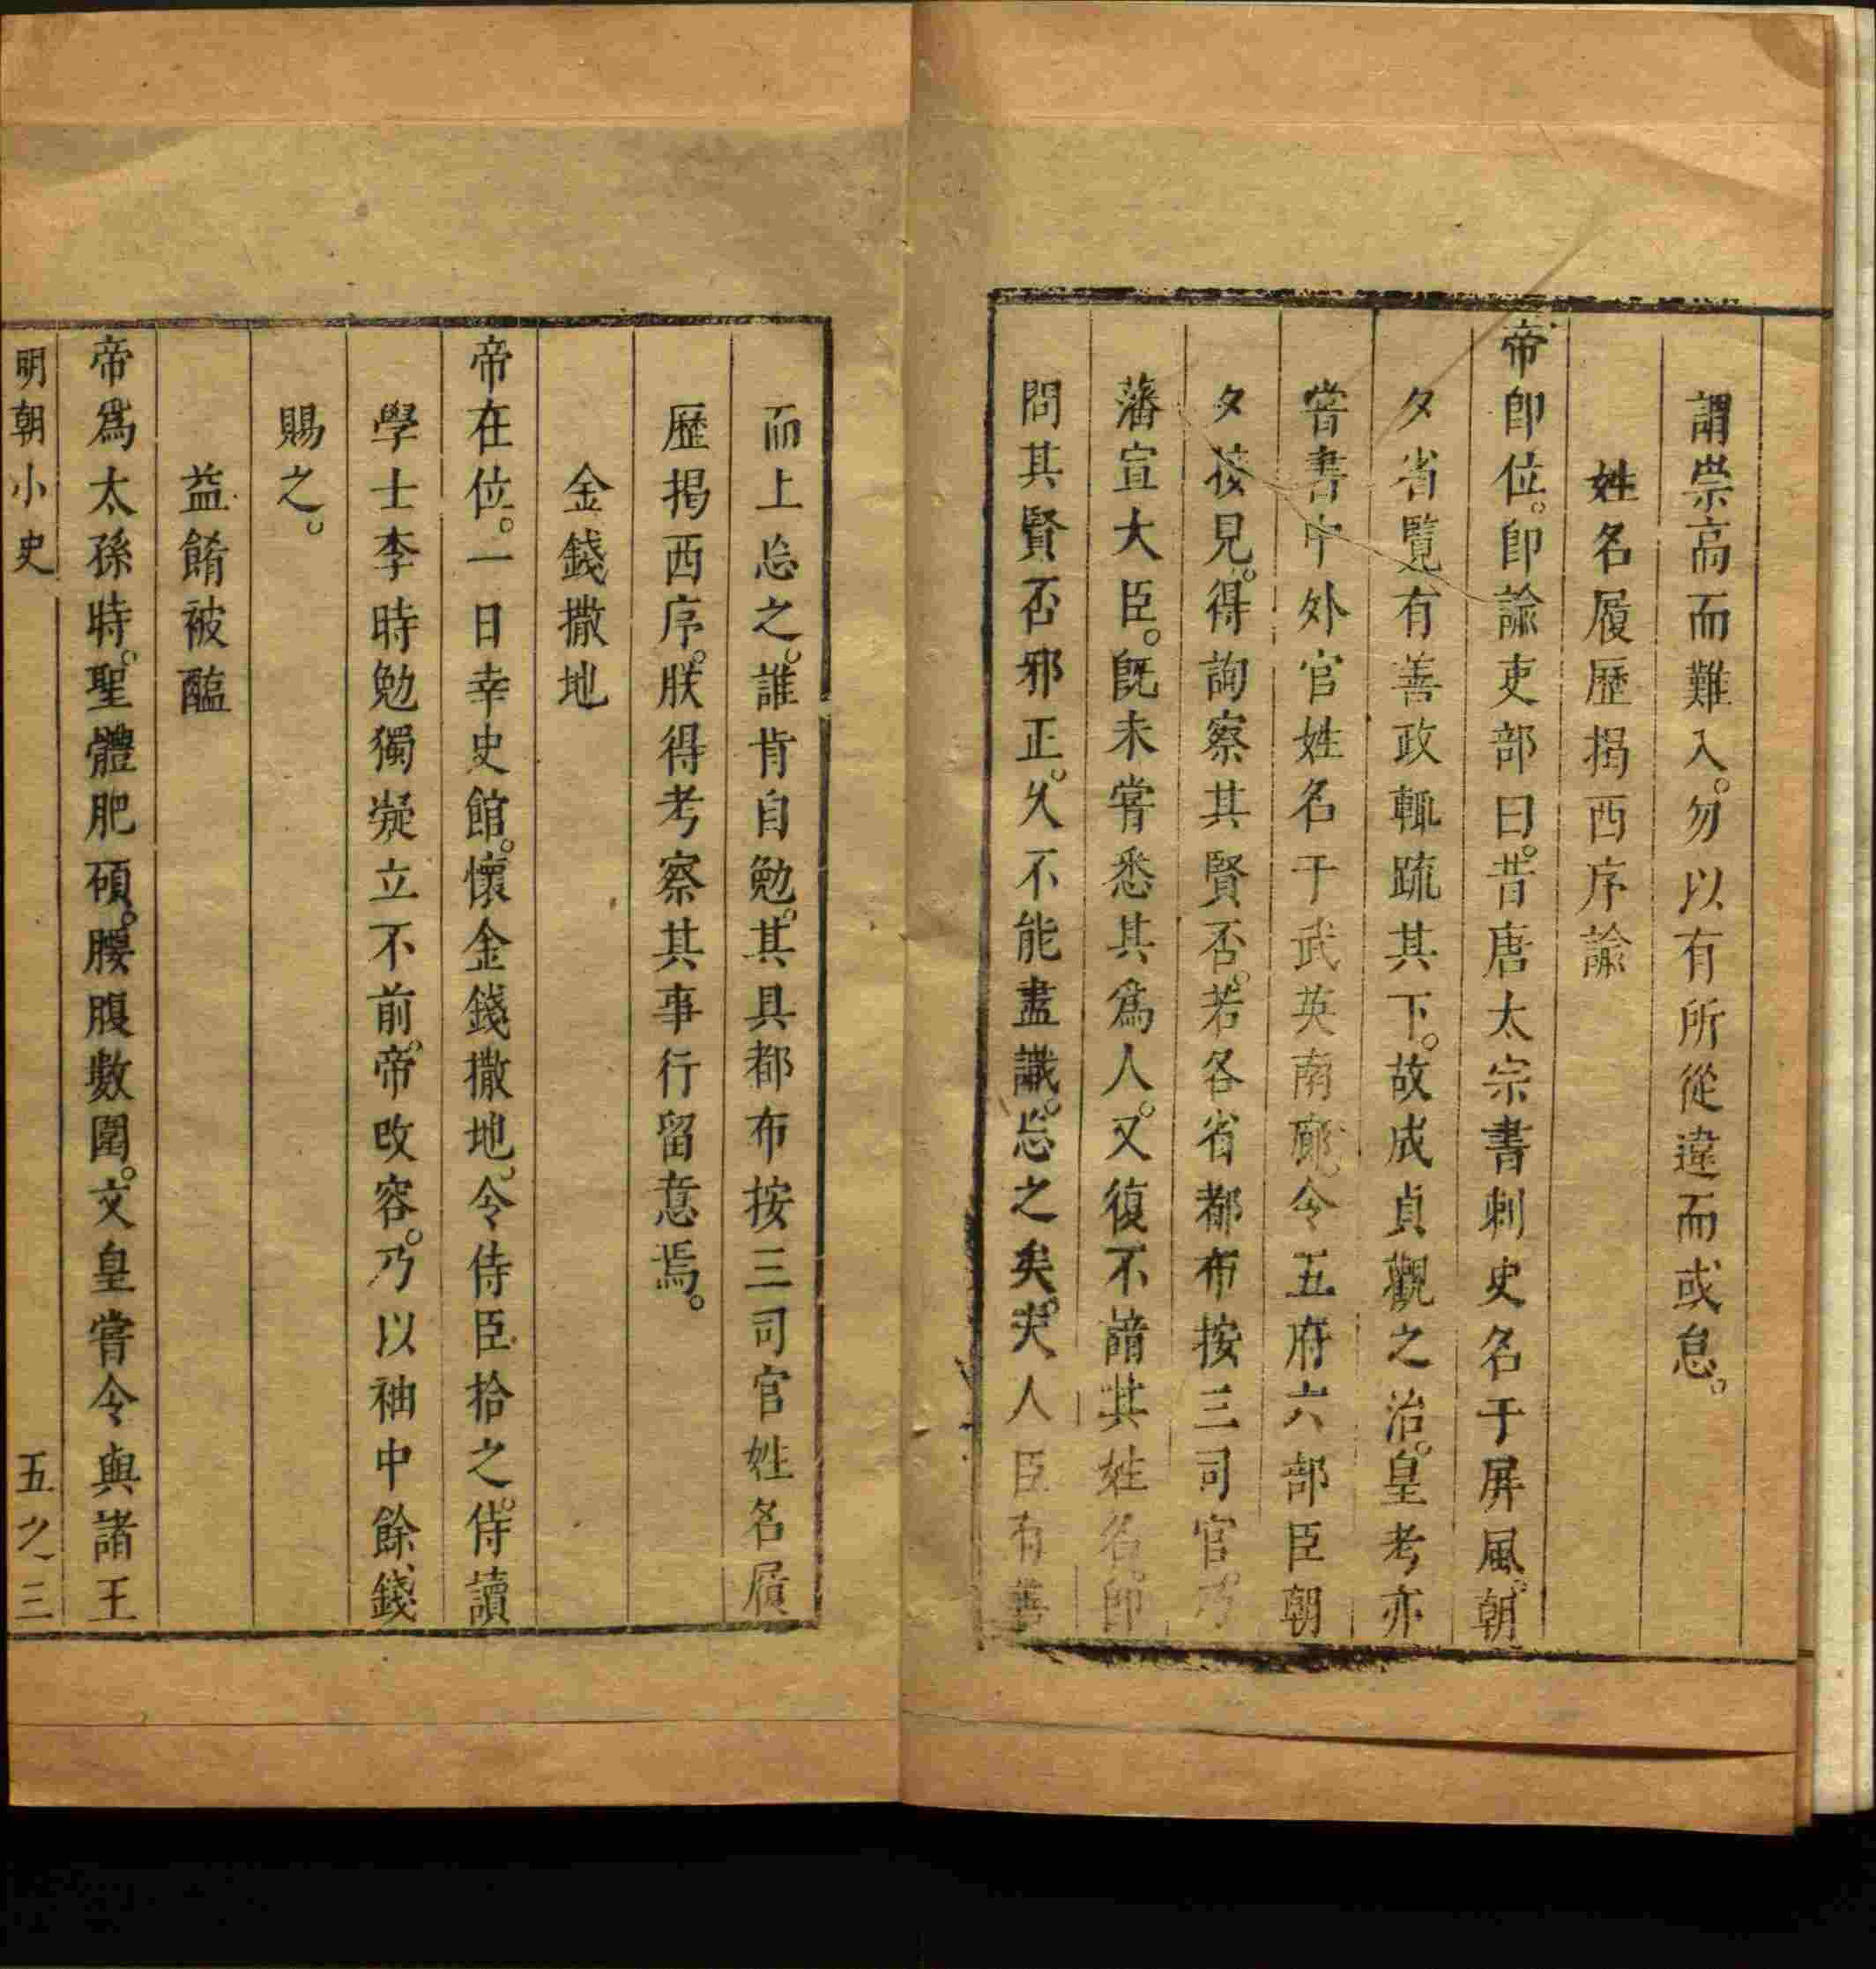 謂崇高而難入。勿以有所從違而或怠。
姓名履歷揭西序諭
帝卽位。卽諭吏部曰。昔唐太宗書刺史名于屏風。朝
夕省覽有善政輒疏其下。故成貞觀之治。皇考亦
嘗書中外官姓名于武英南廊。令五府六部臣朝
夕接見。得詢察其賢否。若各省都布按三司官。乃
藩宣大臣。旣未嘗悉其爲人。又復不諳其姓名。卽
問其賢否邪正。久不能盡識。忘之矣。夫人臣有善
而上忘之。誰肯自勉。其具都布按三司官姓名履
歷揭西序。朕得考察其事行留意焉。
金錢撒地
帝在位。一日幸史館。懷金錢撒地。令侍臣拾之。侍讀
學士李時勉獨凝立不前。帝改容。乃以袖中餘錢
賜之。
益餚被醢
帝爲太孫時。聖體肥碩。腰腹數圍。文皇嘗令與諸王
明朝小史 五之三